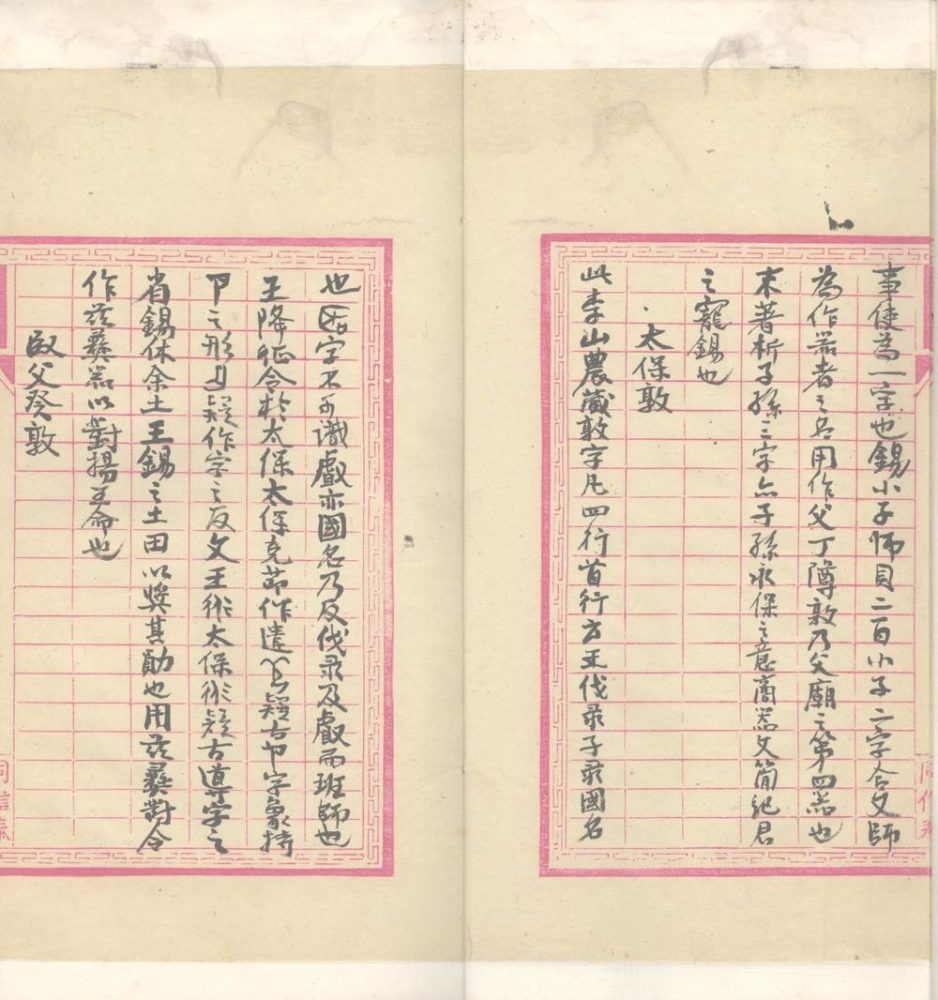 事使為一字也錫小子師貝二百小子二字合文師
為作器者之名用作父丁䵼敦乃父廟之第四器也
末著析子孫三字亦子孫永保之意商器文簡紀君
之寵錫也
太保敦
此李山農藏敦字凡四行首行方王伐彔子彔國名
也 字不可識䖒亦國名乃反伐彔及䖒而班師也
王降征令於太保太保克茍作遣 疑古 字象持
卩之形 疑作字之反文王 太保 疑古導字之
省錫休余土王錫之土田以獎其勛也用茲彝對令
作茲彝器以對揚王命也
臤父癸敦
同信